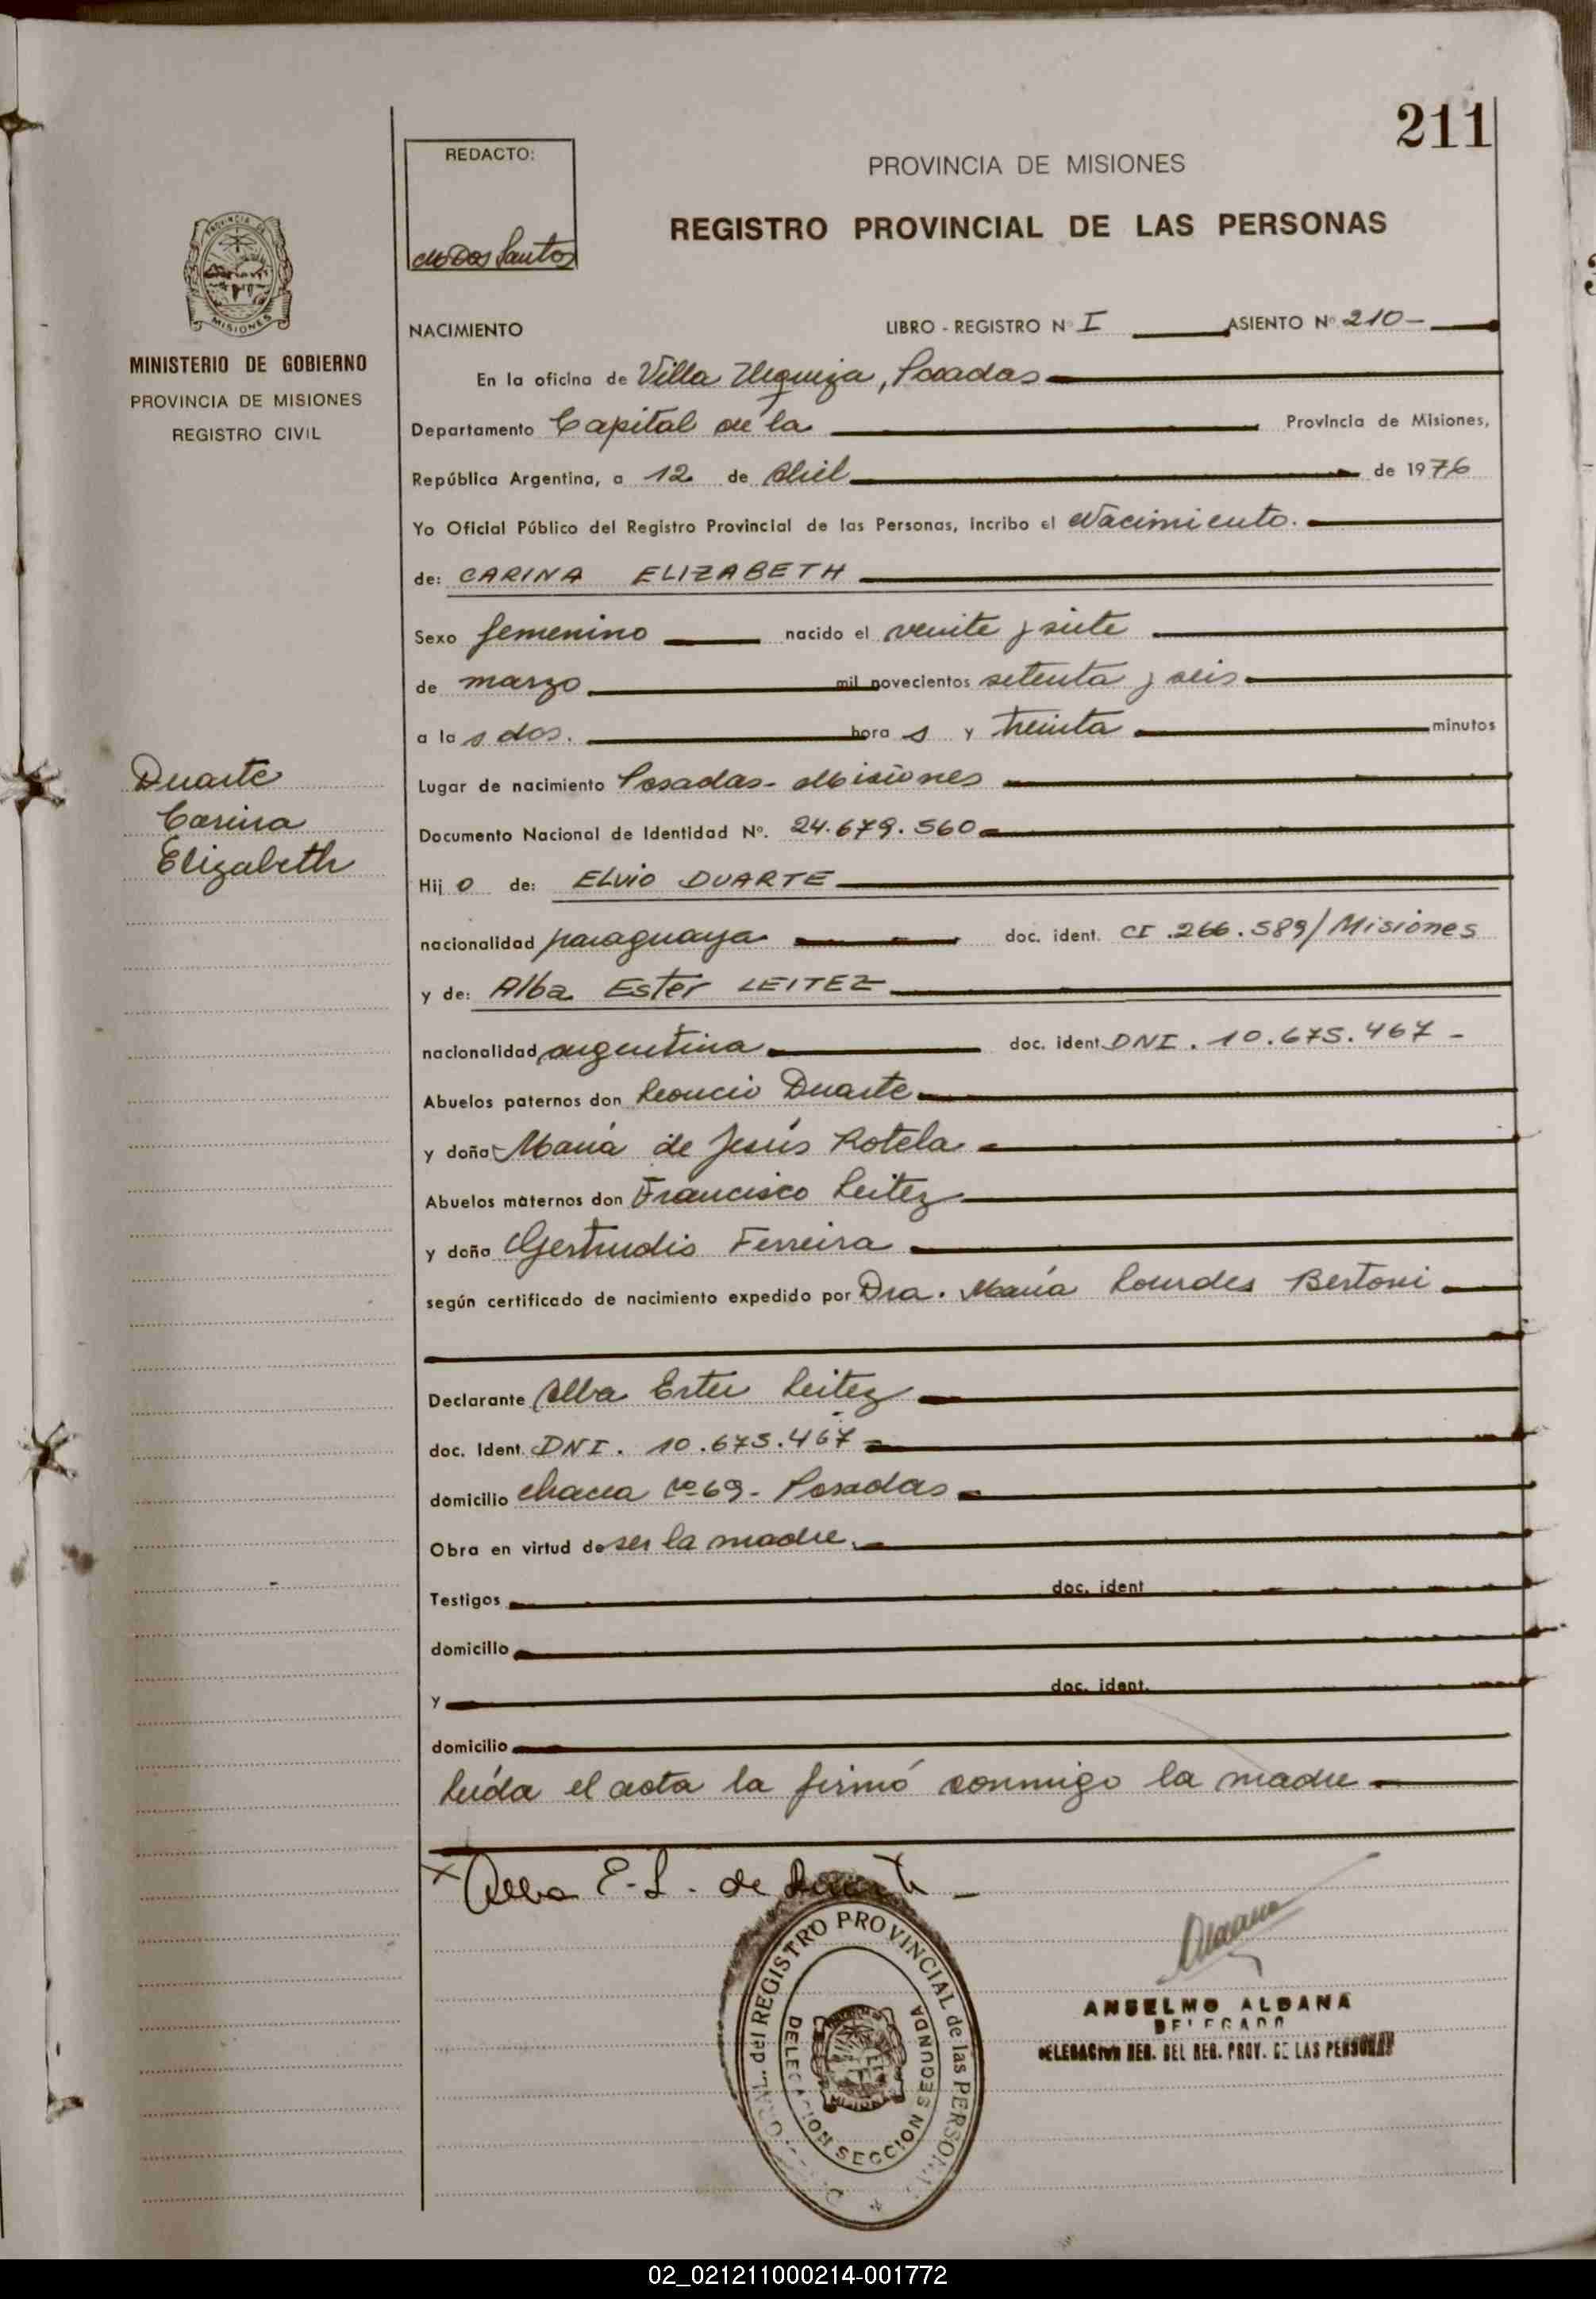 211
REDACTO:
Dos Santos
PROVINCIA DE MISIONES
REGISTRO PROVINCIAL DE LAS PERSONAS
PROVINCIA DE
MISIONES
MINISTERIO DE GOBIERNO
PROVINCIA DE MISIONES
REGISTRO CIVIL
NACIMIENTO LIBRO - REGISTRO Nº I ASIENTO Nº 210-
En la oficina de Villa Urquiza, Posadas
Departamento Capital de la Provincia de Misiones,
República Argentina, a 12 de Abril de 1976
Yo Oficial Público del Registro Provincial de las Personas, incribo el Nacimiento.
de: CARINA ELIZABETH
Sexo femenino nacido el veinte y siete
de marzo mil novecientos setenta y seis
a la s dos. hora s y treinta minutos
Duarte
Carina
Elizabeth
Lugar de nacimiento Posadas- Misiones
Documento Nacional de Identidad Nº. 24.679.560
Hij o de: ELVIO DUARTE
nacionalidad paraguaya doc. ident. CI.266.589/Misiones
y de: Alba Ester LEITEZ
nacionalidad argentina doc. ident. DNI. 10.675.467-
Abuelos paternos don Leoncio Duarte
y doña María de Jesús Rotela
Abuelos maternos don Francisco Leitez
y doña Gertrudis Ferreira
según certificado de nacimiento expedido por Dra. María Lourdes Bertoni
Declarante Alba Ester Leitez
doc. Ident. DNI. 10.675.467
domicilio chacra Nº 69- Posadas
Obra en virtud de ser la madre.
Testigos doc. ident
domicilio
y doc. ident.
domicilio
Leída el acta la firmó conmigo la madre
x Alba E. L. de Duarte
del REGISTRO PROVINCIAL de las PERSONAS
DELEGACION SECCION SEGUNDA
ANSELMO ALDANA
DELEGADO
DELEGACION REG. DEL REG. PROV. DE LAS PERSONAS
02_021211000214-001772